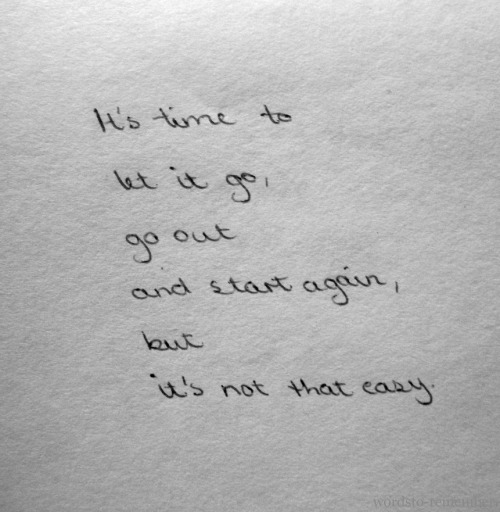 It's time to
let it go,
go out
and start again,
but
it's not that easy.
wordsto-remember